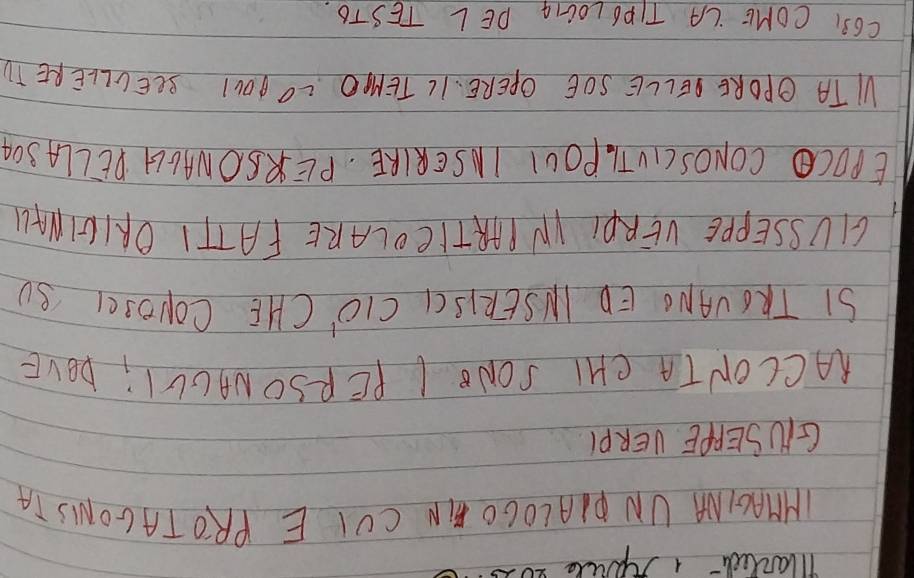 Martedì 1 Aprile 2025
IMMAGINA UN DIALOGO IN CUI E PROTAGONISTA
GIUSEPPE VERDI
RACCONTA CHI SONO I PERSONAGGI, DOVE
SI TROVANO ED INSERISCI CIÒ CHE CONOSCI SU
GIUSSEPPE VERDI IN PARTICOLARE FATTI ORIGINALI
EPOCA CONOSCIUTI. PUOI INSERIRE PERSONAGGI DELLA SUA
VITA OPORE DELLE SUE OPERE. IL TEMPO LO PUOI SCEGLIERE TU
COSI COME LA TIPOLOGIA DEL TESTO.